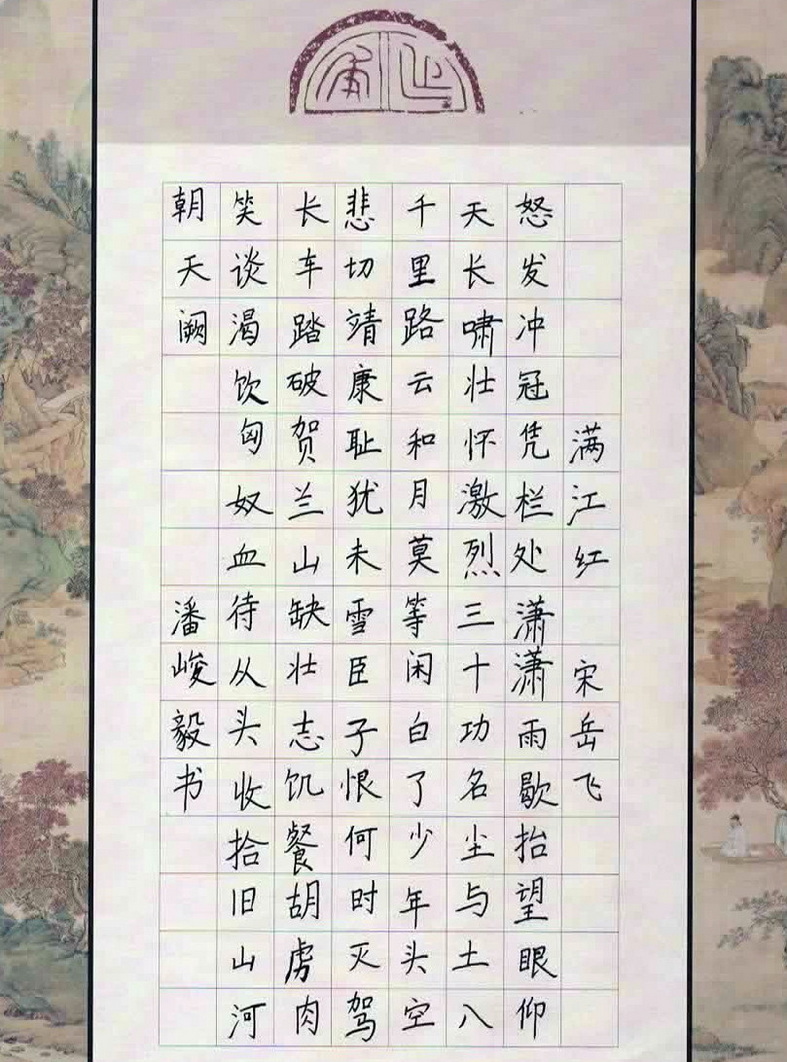 满江红 宋岳飞
怒发冲冠凭栏处潇潇雨歇抬望眼仰
天长啸壮怀激烈三十功名尘与土八
千里路云和月莫等闲白了少年头空
悲切靖康耻犹未雪臣子恨何时灭驾
长车踏破贺兰山缺壮志饥餐胡虏肉
笑谈渴饮匈奴血待从头收拾旧山河
朝天阙 潘峻毅书